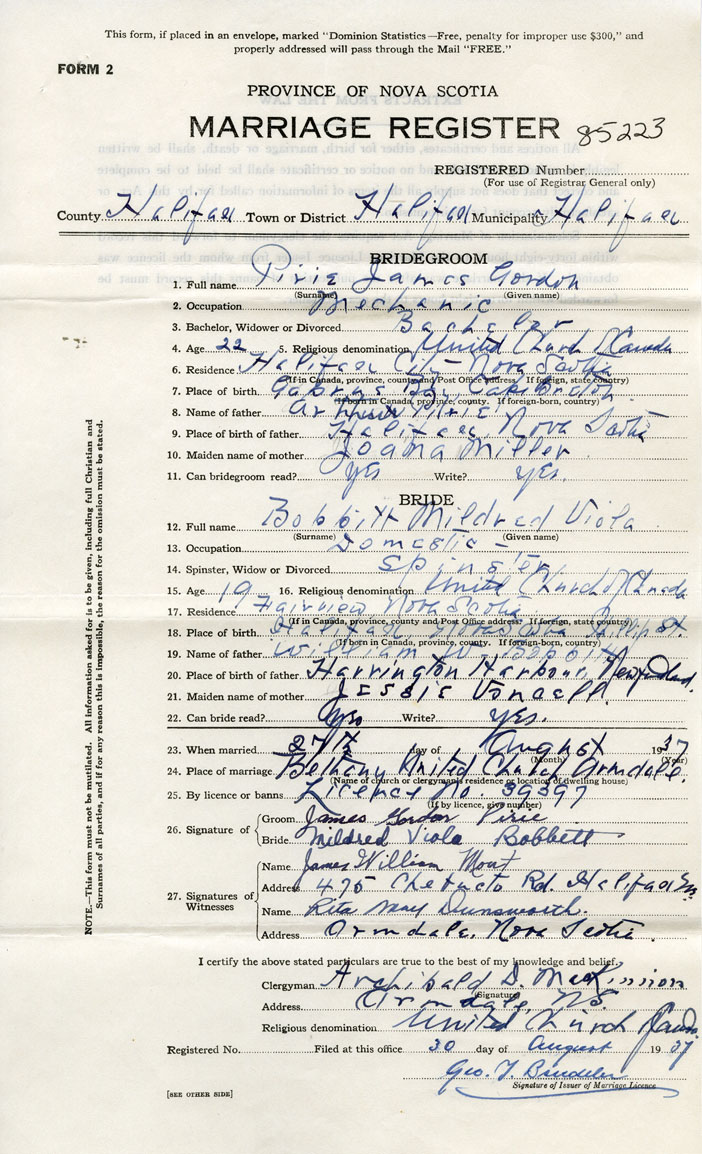 This form, if placed in an envelope, marked "Dominion Statistics—Free, penalty for improper use $300," and
properly addressed will pass through the Mail "FREE."
FORM 2
PROVINCE OF NOVA SCOTIA
MARRIAGE REGISTER 85223
REGISTERED Number
(For use of Registrar General only)
County Halifax Town or District Halifax Municipality Halifax
BRIDEGROOM
1. Full name Pirie James Gordon
(Surname) (Given name)
2. Occupation Mechanic
3. Bachelor, Widower or Divorced Bachelor
4. Age 22 5. Religious denomination United Church Canada
6. Residence Halifax City - Nova Scotia
(If in Canada, province, county and Post Office address If foreign, state country)
7. Place of birth Gabarus Bay, Cape Breton
(If born in Canada, province, county. If foreign-born, country)
8. Name of father Pirie
9. Place of birth of father Halifax, Nova Scotia
10. Maiden name of mother Joana Miller
11. Can bridegroom read? Yes Write? Yes.
BRIDE
12. Full name Bobbitt Mildred Viola
(Surname) (Given name)
13. Occupation Domestic -
14. Spinster, Widow or Divorced Spinster
15. Age 19 16. Religious denomination United Church of Canada
17. Residence Fairview Nova Scotia
(If in Canada, province, county and Post Office address If foreign, state country)
18. Place of birth Halifax St.
(If born in Canada, province, county. If foreign-born, country)
19. Name of father William
20. Place of birth of father Harrington Harbour, Newfoundland.
21. Maiden name of mother Jessie
22. Can bride read? Yes Write? Yes.
23. When married 27th day of August 1937
(Month) (Year)
24. Place of marriage Bethany United Church Armdale.
(Name of church or clergyman's residence or location of dwelling house)
25. By licence or banns Licence No. 39397
(If by licence, give number)
26. Signature of { Groom James Gordon Pirie
Bride Mildred Viola Bobbett
27. Signatures of Witnesses { Name James William Mont
Address 475 Chebucto Rd. Halifax
Name Rita May Dunsworth.
Address Armdale, Nova Scotia.
I certify the above stated particulars are true to the best of my knowledge and belief.
Clergyman Archibald D. MacKinnon
(Signature)
Address Armdale, N.S.
Religious denomination United Church Canada
Registered No. Filed at this office 30 day of August 1937
Geo. T.
Signature of Issuer of Marriage Licence
[SEE OTHER SIDE]
NOTE.—This form must not be mutilated. All information asked for is to be given, including full Christian and
Surnames of all parties, and if for any reason this is impossible, the reason for the omission must be stated.